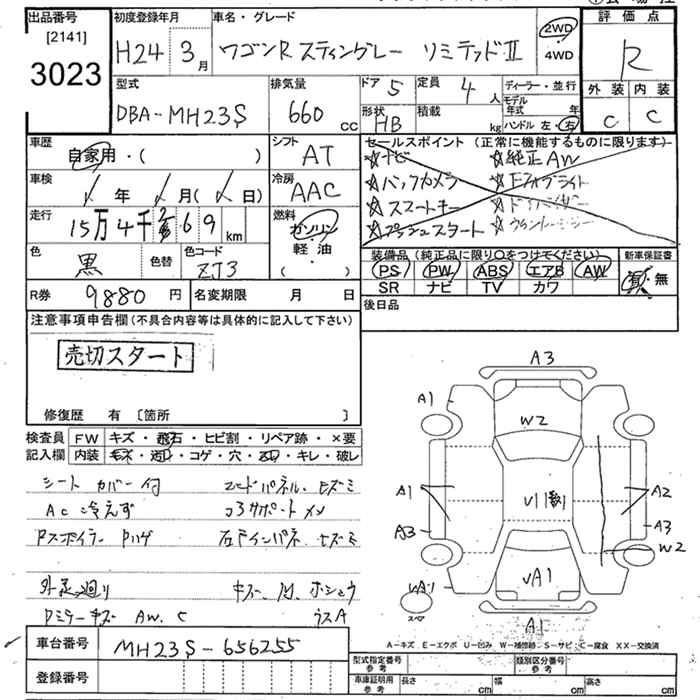 出品番号
[2141]
3023
初度登録年月
H24 3月
車名・グレード
ワゴンR スティングレー リミテッドⅡ
2WD
4WD
評価点
R
外装 内装
C C
型式
DBA-MH23S
排気量
660 cc
ドア 5
定員 4 人
形状 HB
積載 kg
ディーラー・並行
モデル年式 年
ハンドル 左・右
車歴
自家用・( )
シフト
AT
車検
年 月( 日)
冷房
AAC
走行
15万4千 69 km
燃料
ガソリン
軽・油
( )
色
黒
色替
色コード
ZJ3
R券 9880 円
名変期限 月 日
セールスポイント (正常に機能するものに限ります)
☆ナビ ☆純正AW
☆バックカメラ ☆フォグライト
☆スマートキー
☆プッシュスタート
装備品 (純正品に限り○をつけてください)
PS PW ABS エアB AW
SR ナビ TV カワ
新車保証書
有・無
後日品
注意事項申告欄 (不具合内容等は具体的に記入して下さい)
売切スタート
修復歴 有 〔箇所 〕
検査員
記入欄
FW キズ・飛石・ヒビ割・リペア跡・×要
内装 キズ・汚レ・コゲ・穴・スレ・キレ・破レ
シートカバー付
AC 冷えず
コアサポート
外足廻り
AW. C
ウスA
A3
A1
W2
A1
A2
A3
A3
W2
A1
A1
スペア
A-キズ E-エクボ U-凹み W-補修跡 S-サビ C-腐食 XX-交換済
車台番号
MH23S-656255
登録番号
型式指定番号
参考
類別区分番号
参考
車庫証明用
参考
長さ cm 幅 cm 高さ cm